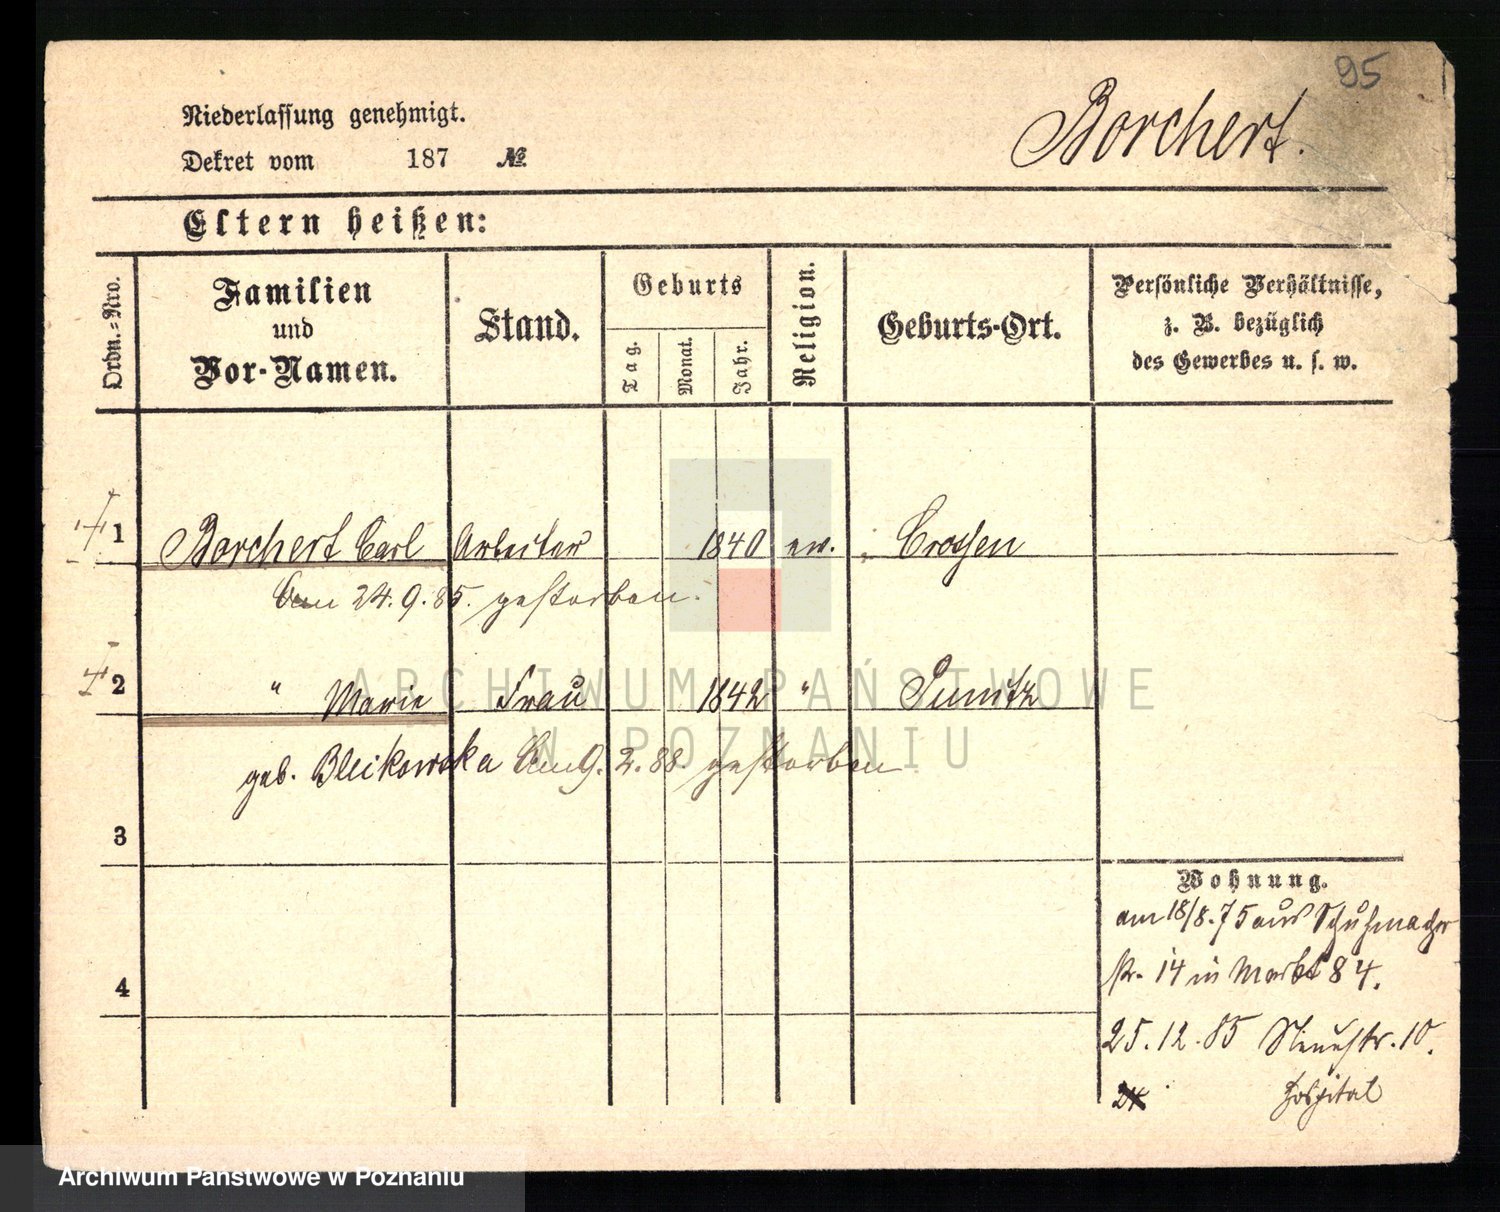 95
Niederlassung genehmigt.
Borchert.
Dekret vom 187 №
Eltern heißen:
Ordn.-Nro.
Familien
und
Vor-Namen.
Stand.
Geburts
Tag.
Monat.
Jahr.
Religion.
Geburts-Ort.
Persönliche Verhältnisse,
z. B. bezüglich
des Gewerbes u. s. w.
1 Borchert Carl Arbeiter 1840 ev. Crossen
24.9.85. gestorben.
2 " Marie Frau 1842 "
geb. 9.2.88. gestorben
3
4
Wohnung.
am 18/8.75 aus Schuhmacher
str. 14 in Markt 84.
25.12.85 Neuestr. 10.
Hospital
ARCHIWUM PAŃSTWOWE
W POZNANIU
Archiwum Państwowe w Poznaniu